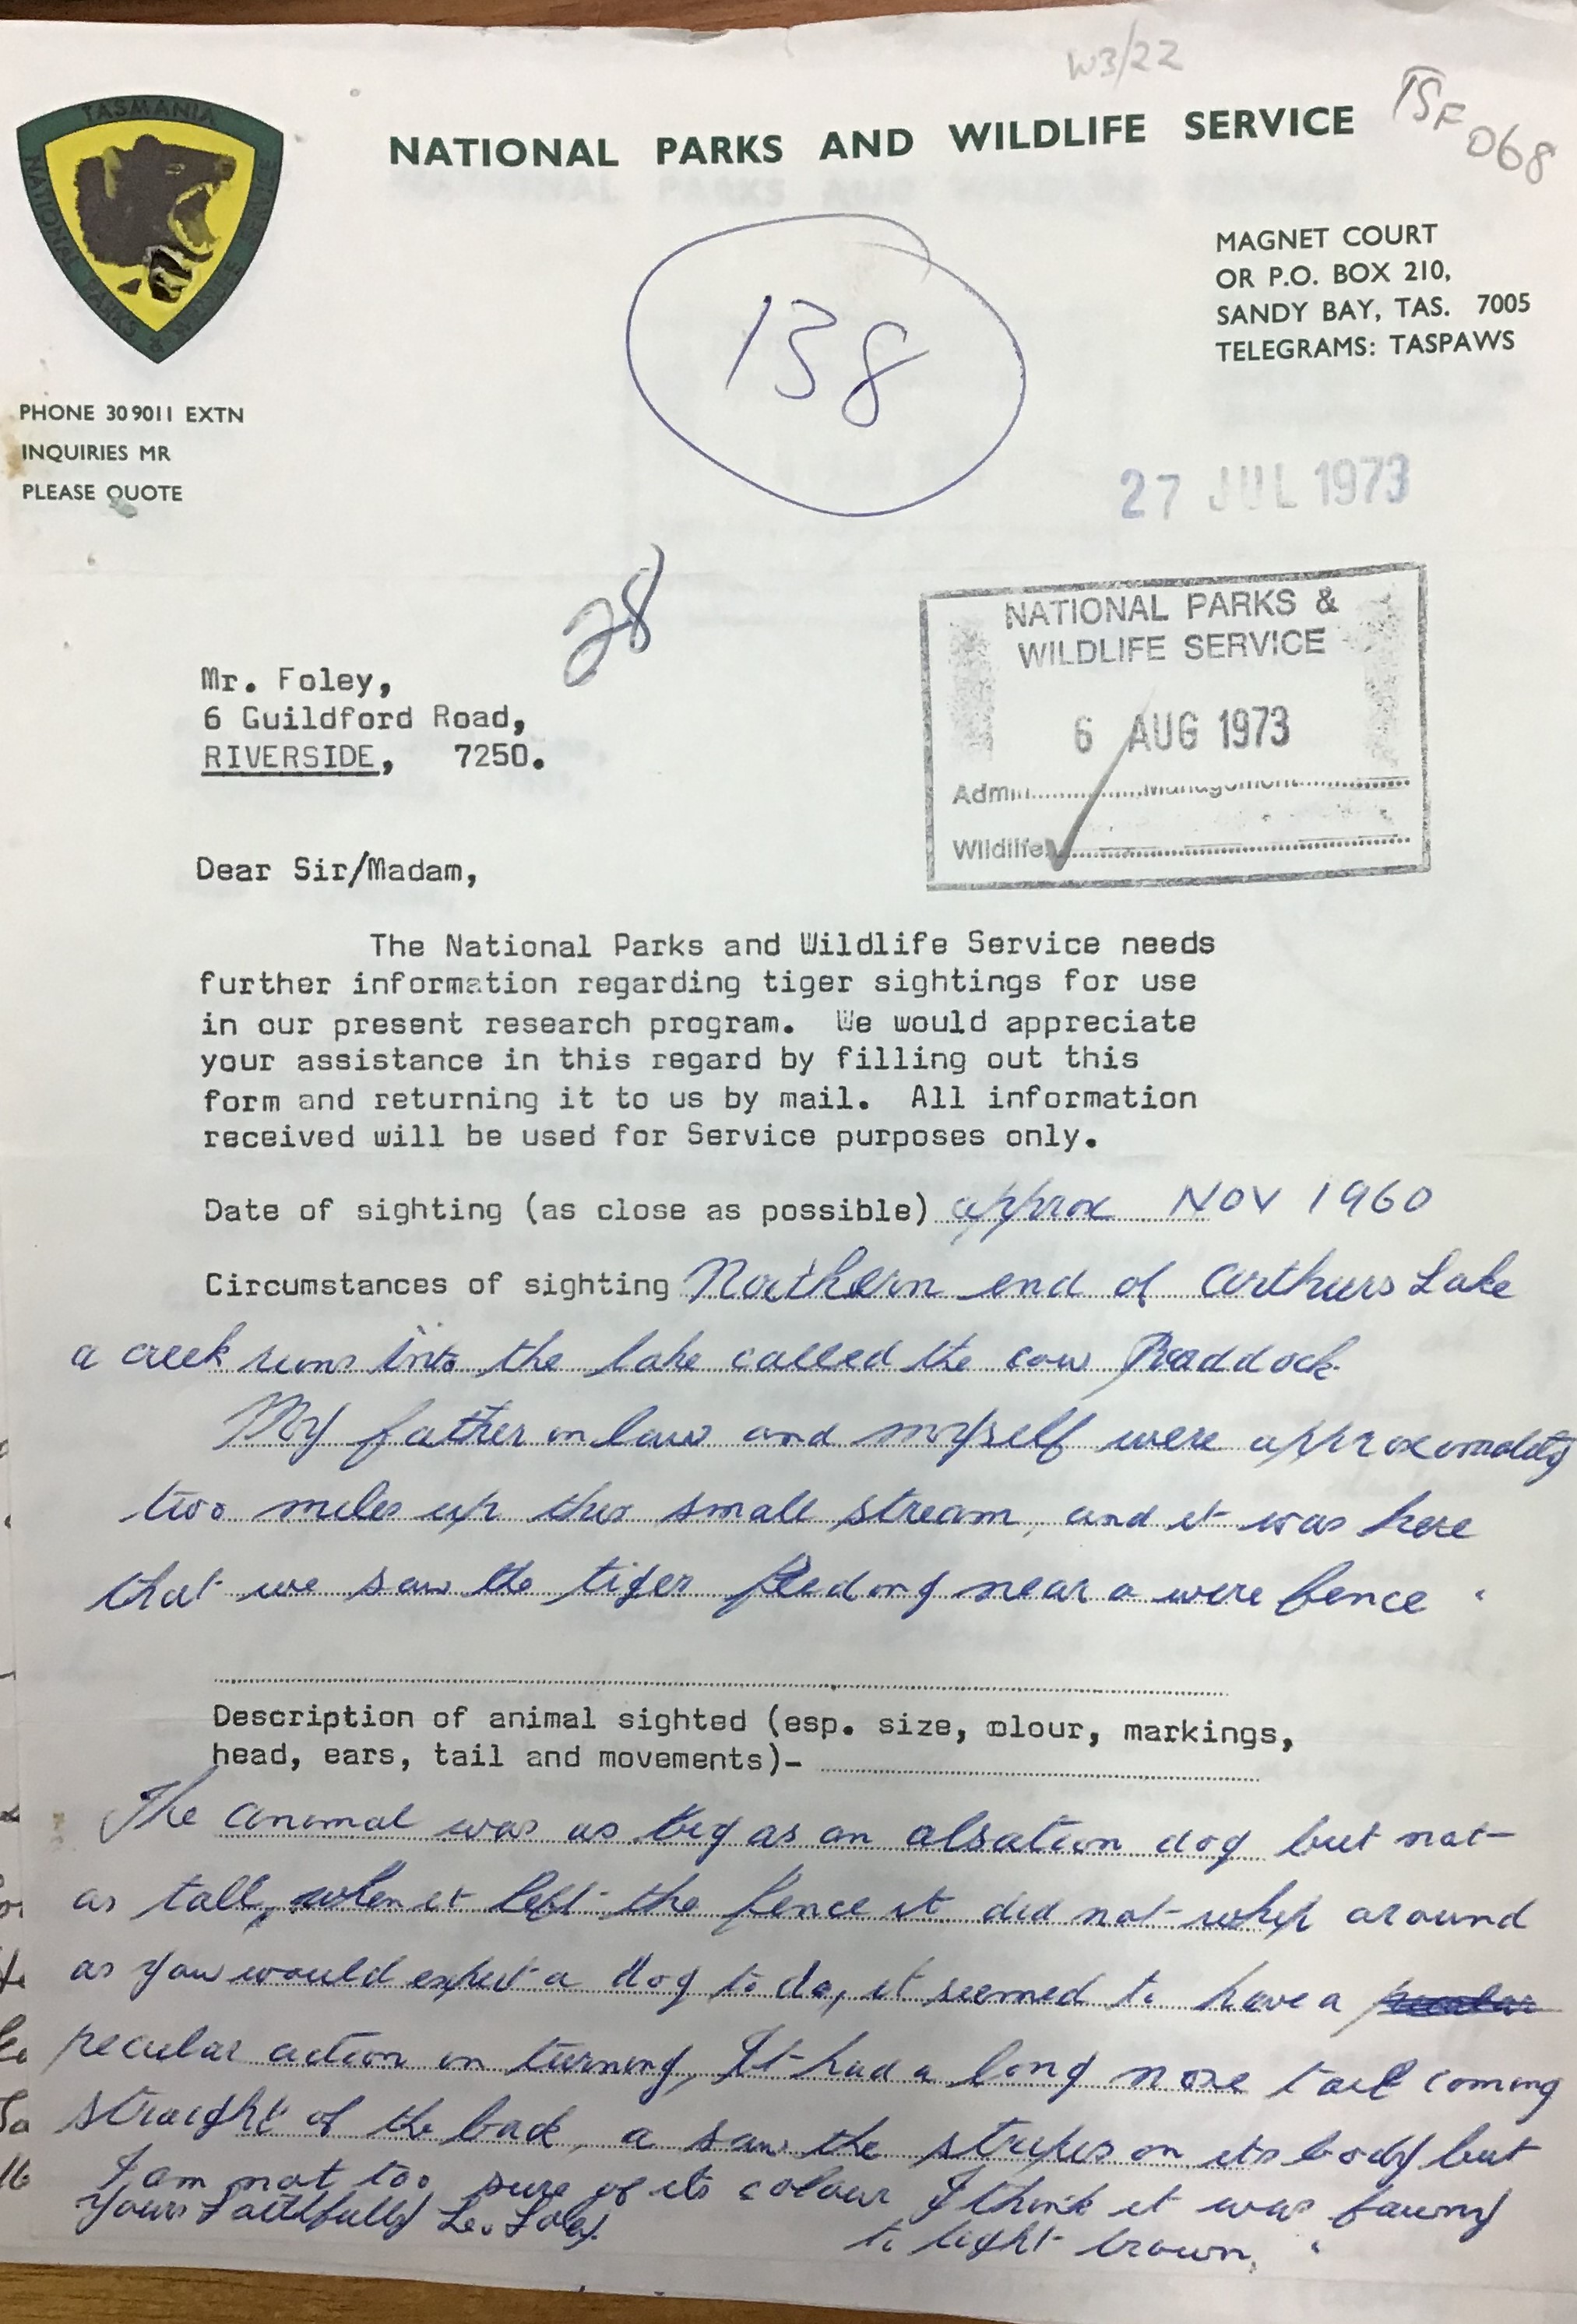 W3/22
TSF 068
TASMANIA
NATIONAL PARKS & WILDLIFE SERVICE
NATIONAL PARKS AND WILDLIFE SERVICE
MAGNET COURT
OR P.O. BOX 210,
SANDY BAY, TAS. 7005
TELEGRAMS: TASPAWS
138
PHONE 30 9011 EXTN
INQUIRIES MR
PLEASE QUOTE
27 JUL 1973
28
NATIONAL PARKS &
WILDLIFE SERVICE
6 AUG 1973
Admin..........Management..........
Wildlife..........
Mr. Foley,
6 Guildford Road,
RIVERSIDE, 7250.
Dear Sir/Madam,
The National Parks and Wildlife Service needs
further information regarding tiger sightings for use
in our present research program. We would appreciate
your assistance in this regard by filling out this
form and returning it to us by mail. All information
received will be used for Service purposes only.
Date of sighting (as close as possible) approx NOV 1960
Circumstances of sighting Northern end of Arthurs Lake
a creek runs into the lake called the cow Paddock
My father in law and myself were approximately
two miles up this small stream, and it was here
that we saw the tiger feeding near a wire fence.
Description of animal sighted (esp. size, colour, markings,
head, ears, tail and movements)-
The animal was as big as an alsation dog but not
as tall, when it left the fence it did not whip around
as you would expect a dog to do, it seemed to have a
pecular action in turning, It had a long nose tail coming
straight of the back, a saw the stripes on its body but
I am not too sure of its colour I think it was fawny
to light brown.
Yours Faithfully L. Foley